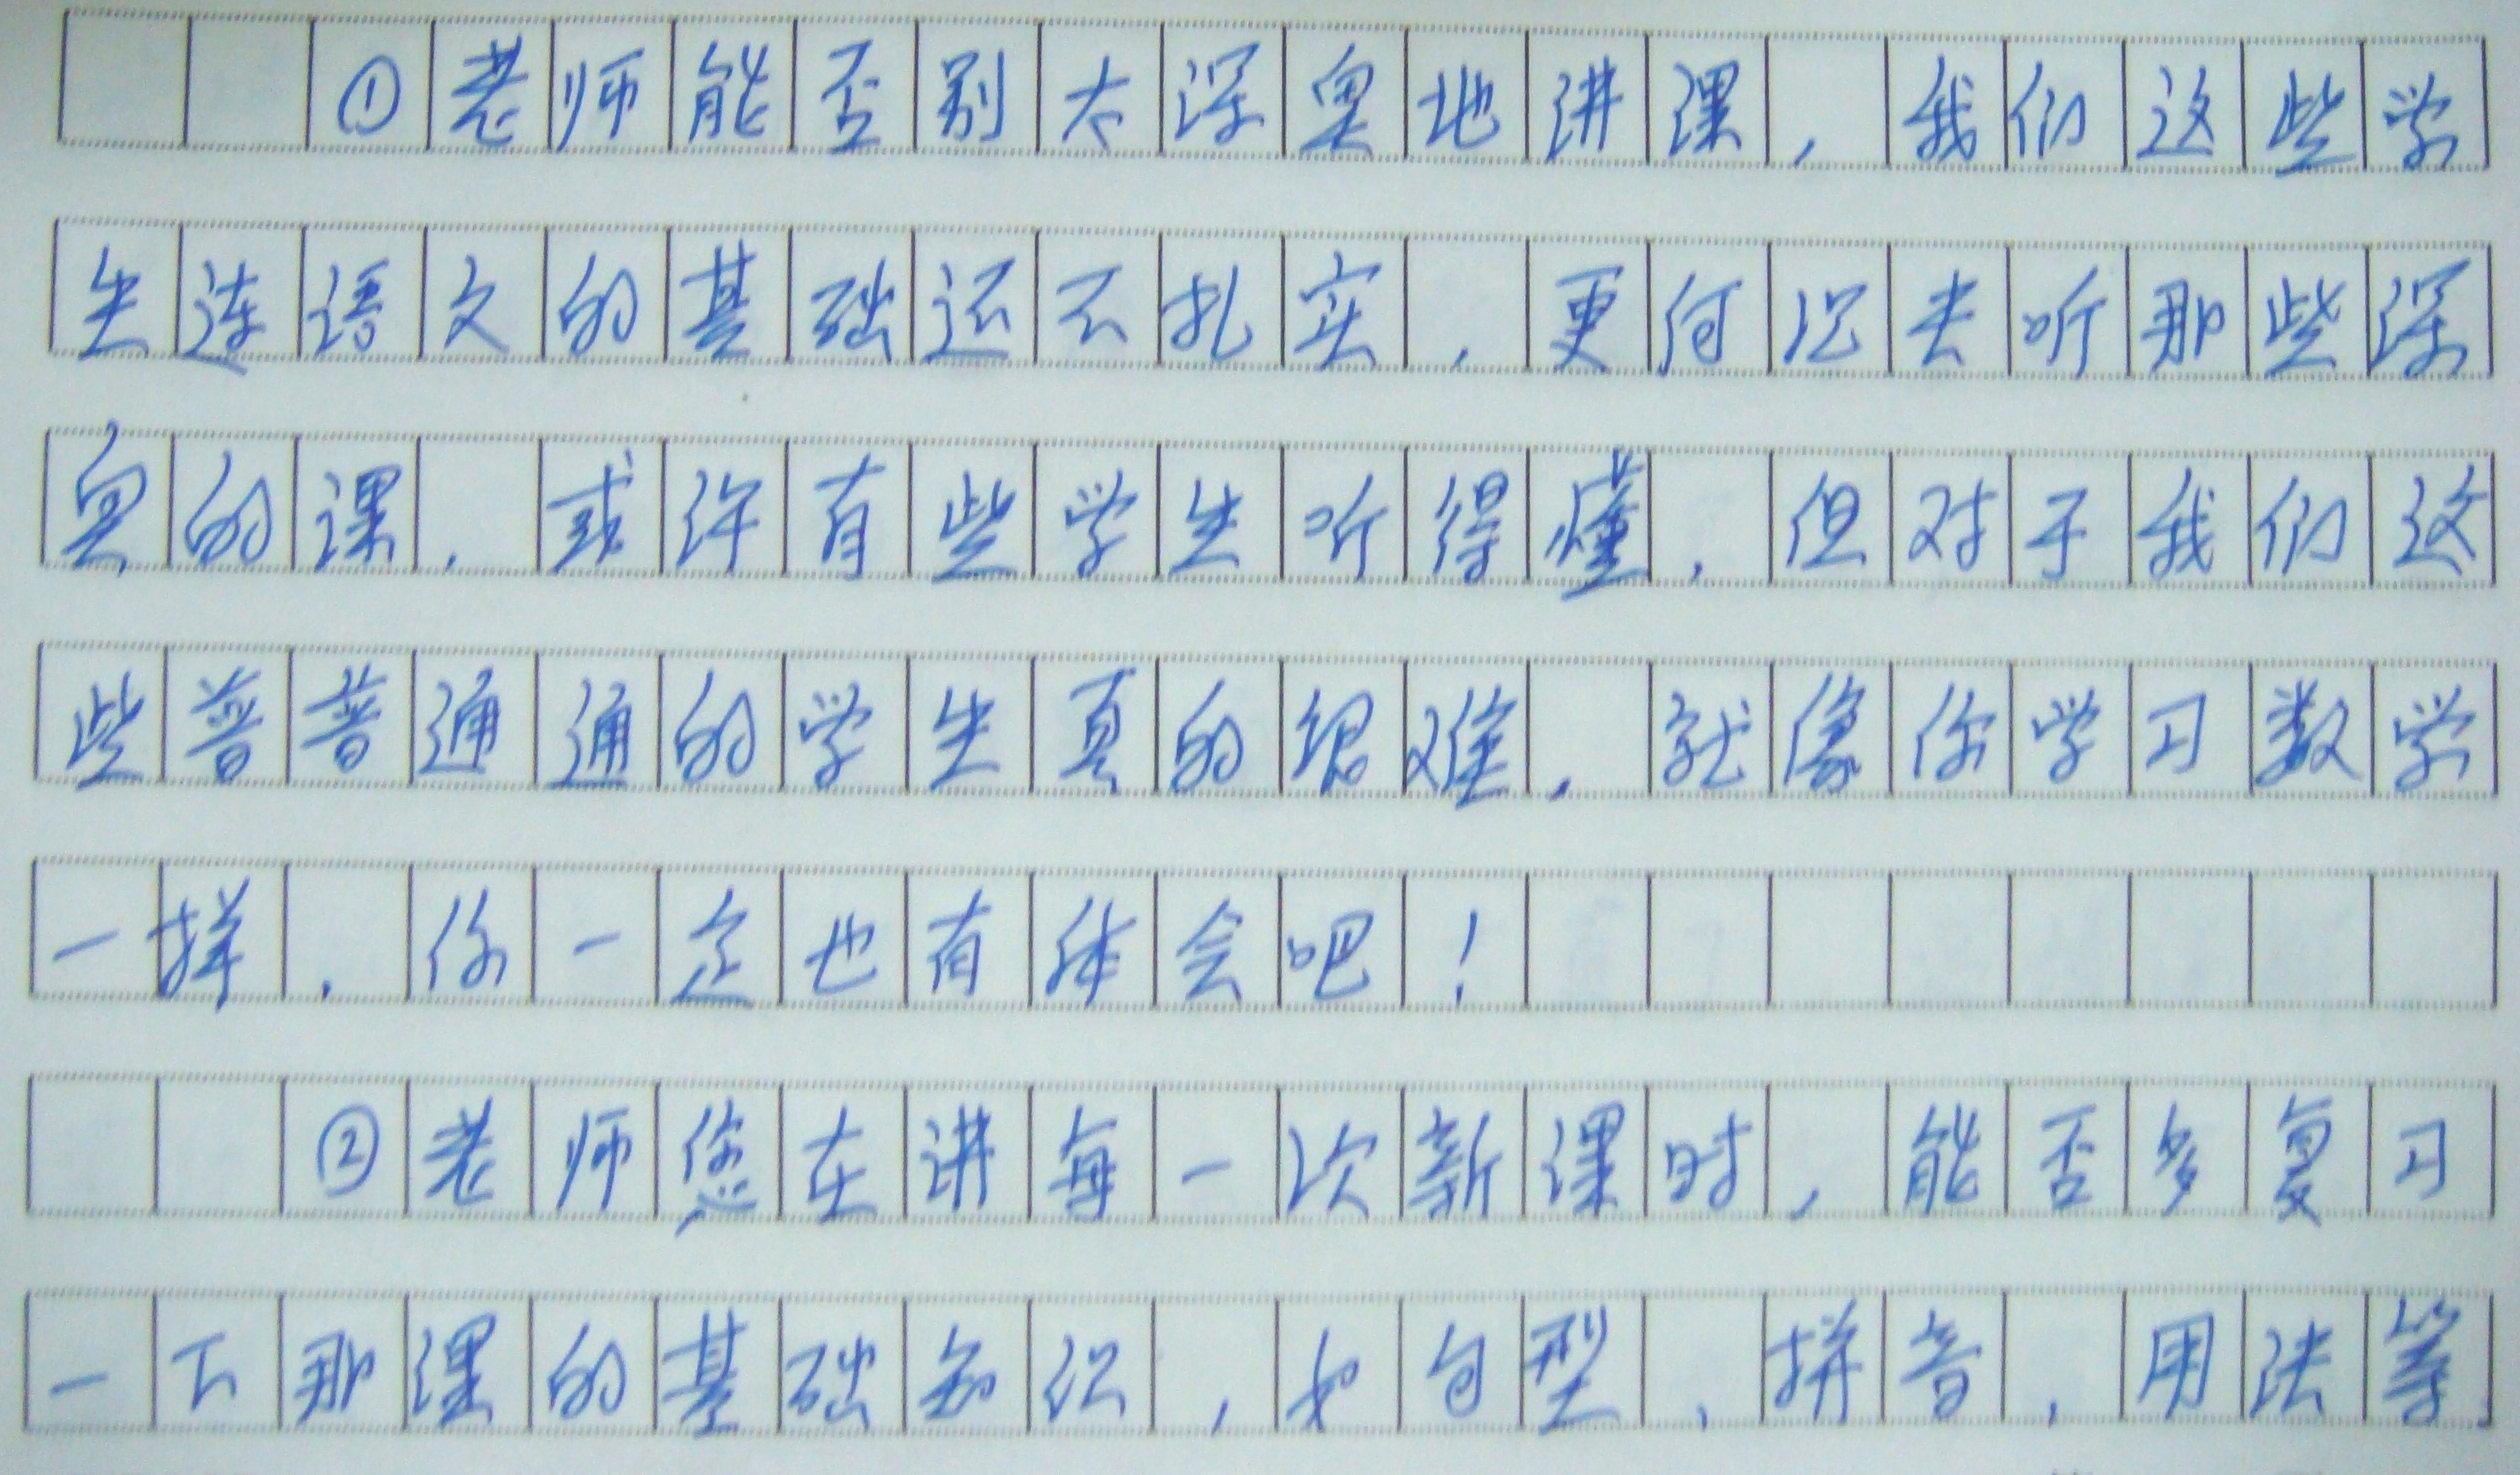 ①老师能否别太深奥地讲课,我们这些学
生连语文的基础还不扎实,更何况去听那些深
奥的课,或许有些学生听得懂,但对于我们这
些普普通通的学生真的很难,就像你学习数学
一样,你一定也有体会吧!
②老师您在讲每一次新课时,能否多复习
一下那课的基础知识,如句型、拼音、用法等,